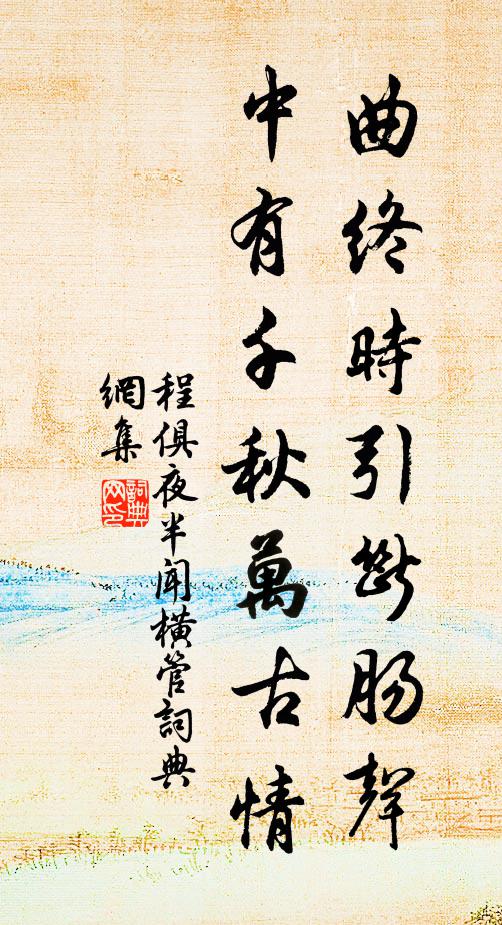 曲終時引斷腸聲
中有千秋萬古情
程俱夜半闻橫管詞典
網集
詞典
网印